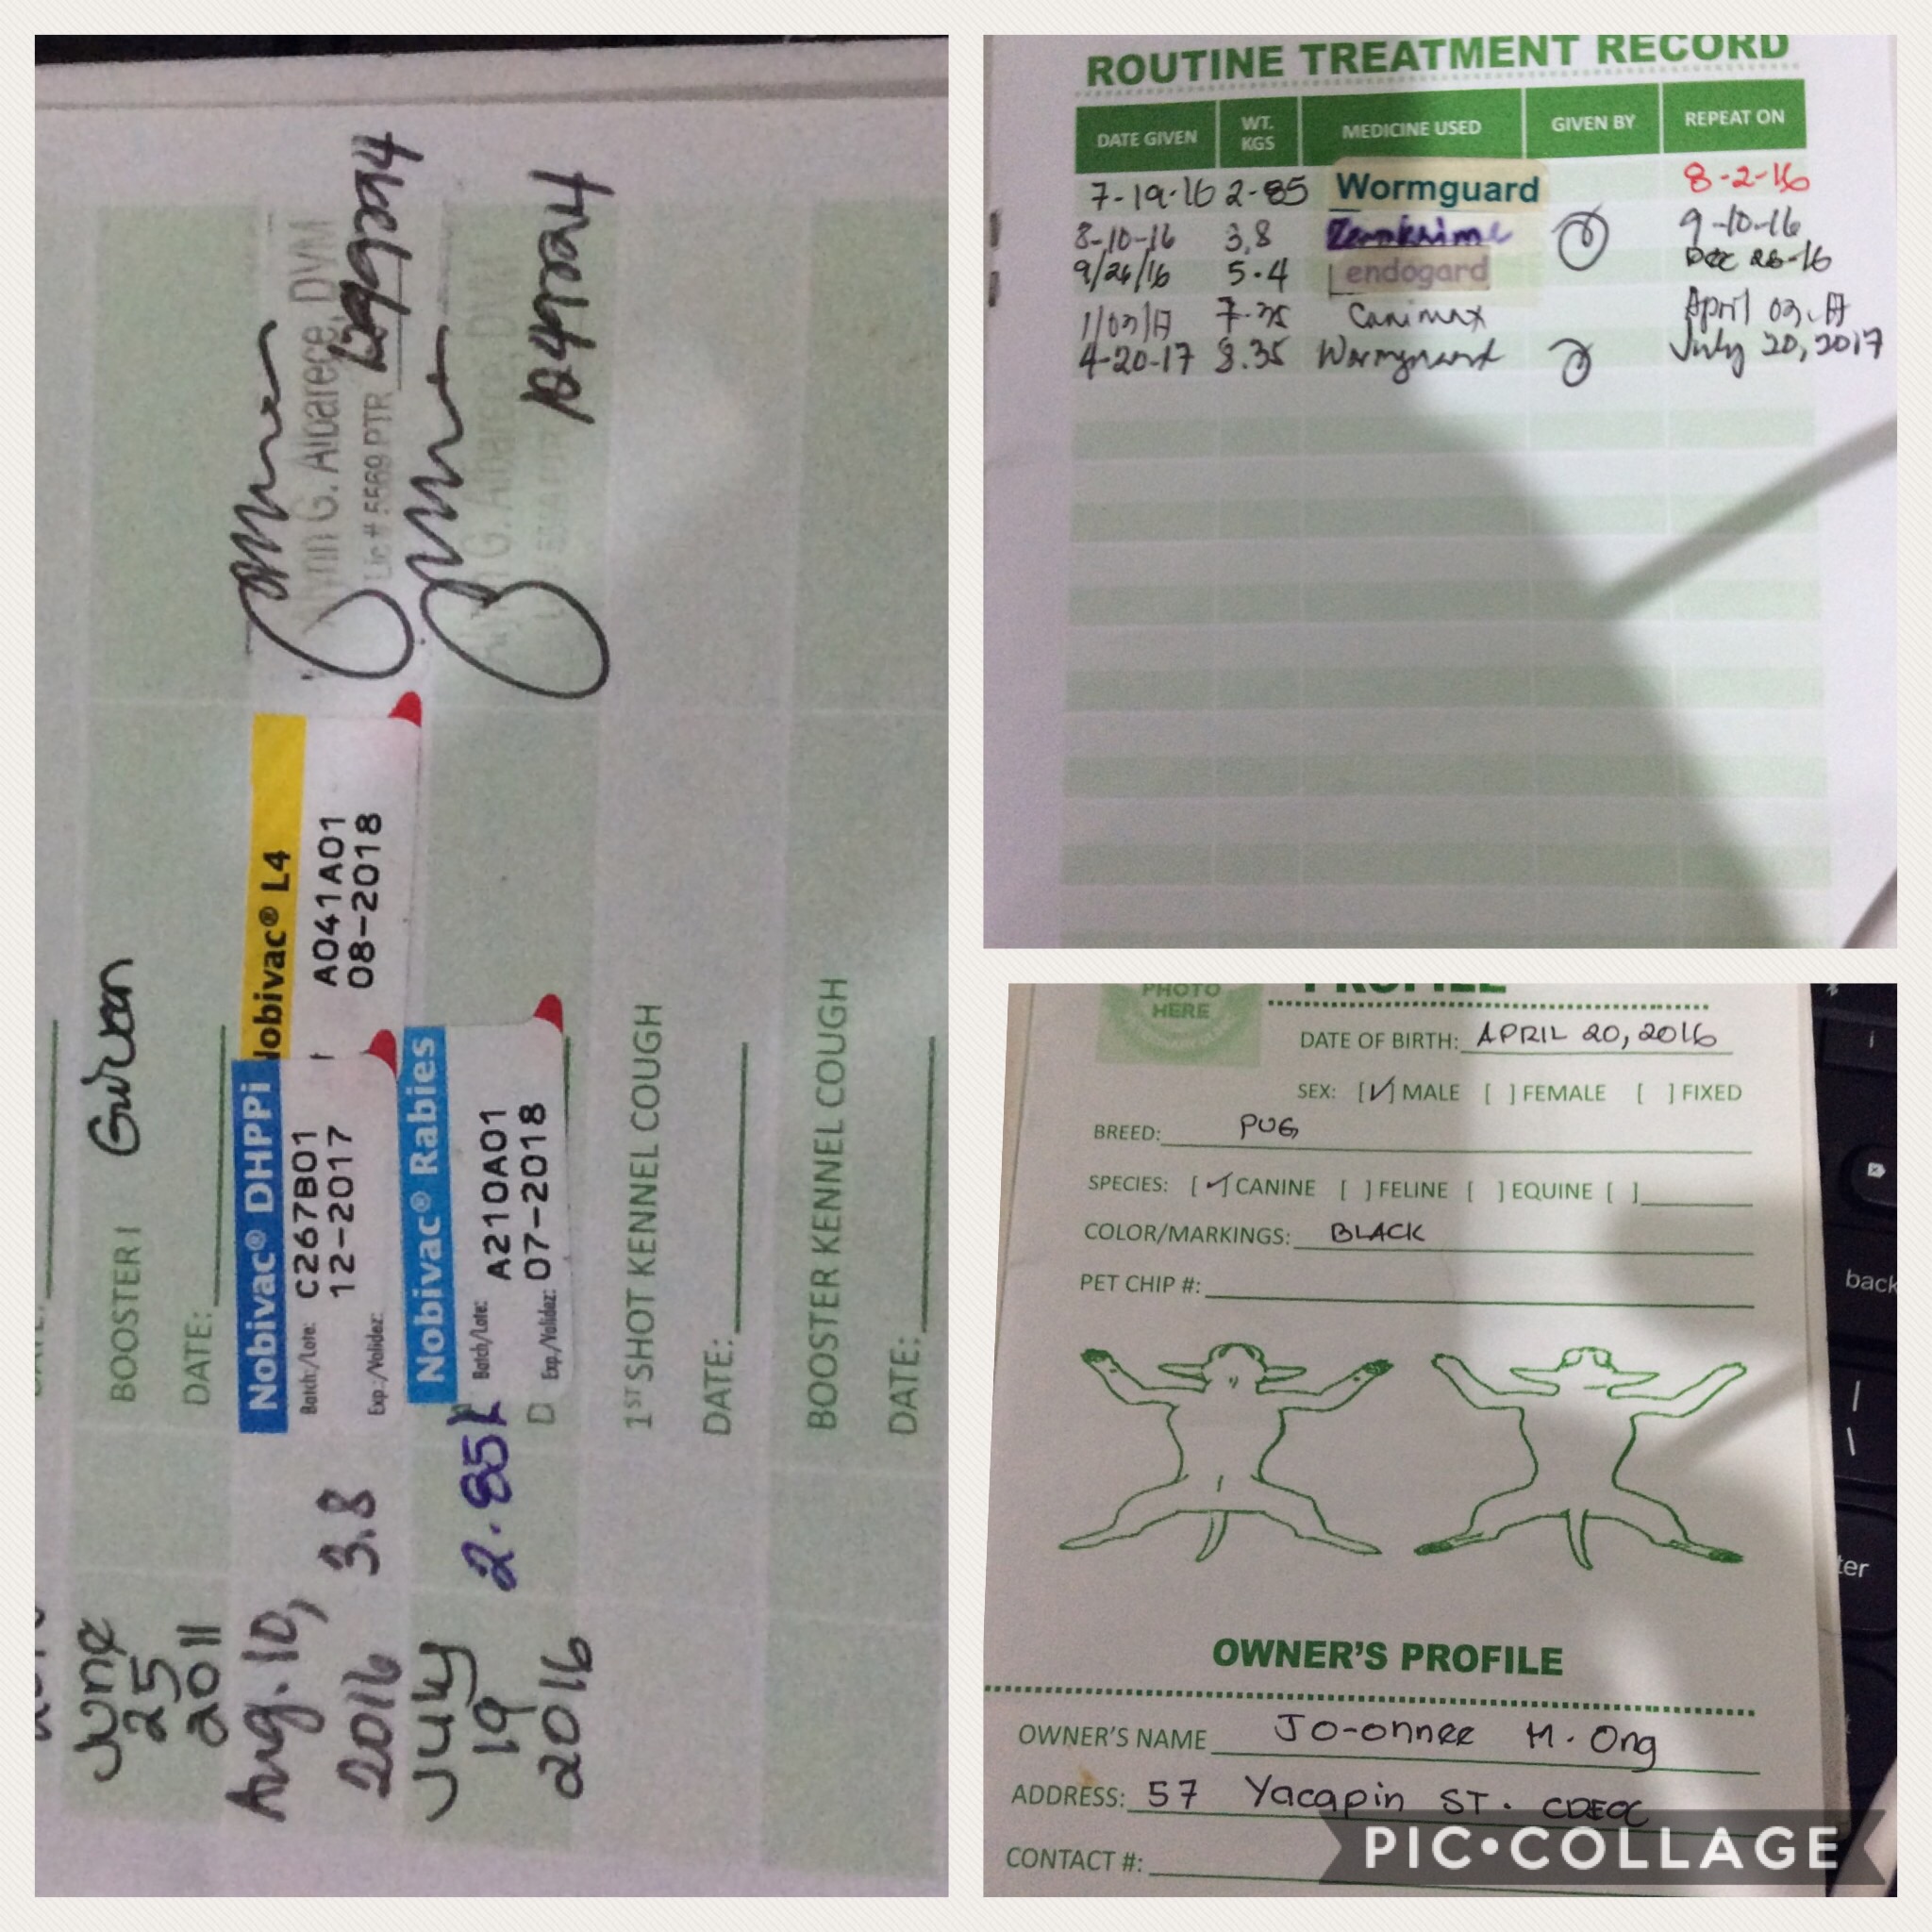 BOOSTER I Given
DATE:
June
25
2011
Nobivac® DHPPi
Batch/Lote: C267B01
12-2017
Exp./Validez:
Nobivac® L4
A041A01
08-2018
Aug. 10,
2016
3.8
G. Alparece, DVM
Lic # 5569 PTR
Nobivac® Rabies
Batch/Lote: A210A01
Exp./Validez: 07-2018
July
19
2016
2.85k
1ST SHOT KENNEL COUGH
DATE:
BOOSTER KENNEL COUGH
DATE:
ROUTINE TREATMENT RECORD
DATE GIVEN WT. KGS MEDICINE USED GIVEN BY REPEAT ON
7-19-16 2-85 Wormguard 8-2-16
8-10-16 3,8 9-10-16
9/26/16 5.4 endogard Dec 26-16
1/03/17 7.35 Canimax April 03.17
4-20-17 8.35 Wormguard July 20, 2017
PROFILE
PHOTO
HERE
DATE OF BIRTH: APRIL 20, 2016
SEX: [✓] MALE [ ] FEMALE [ ] FIXED
BREED: PUG
SPECIES: [✓] CANINE [ ] FELINE [ ] EQUINE [ ]
COLOR/MARKINGS: BLACK
PET CHIP #:
OWNER'S PROFILE
OWNER'S NAME Jo-onnee M. Ong
ADDRESS: 57 Yacapin ST.
CONTACT #:
back
PIC•COLLAGE